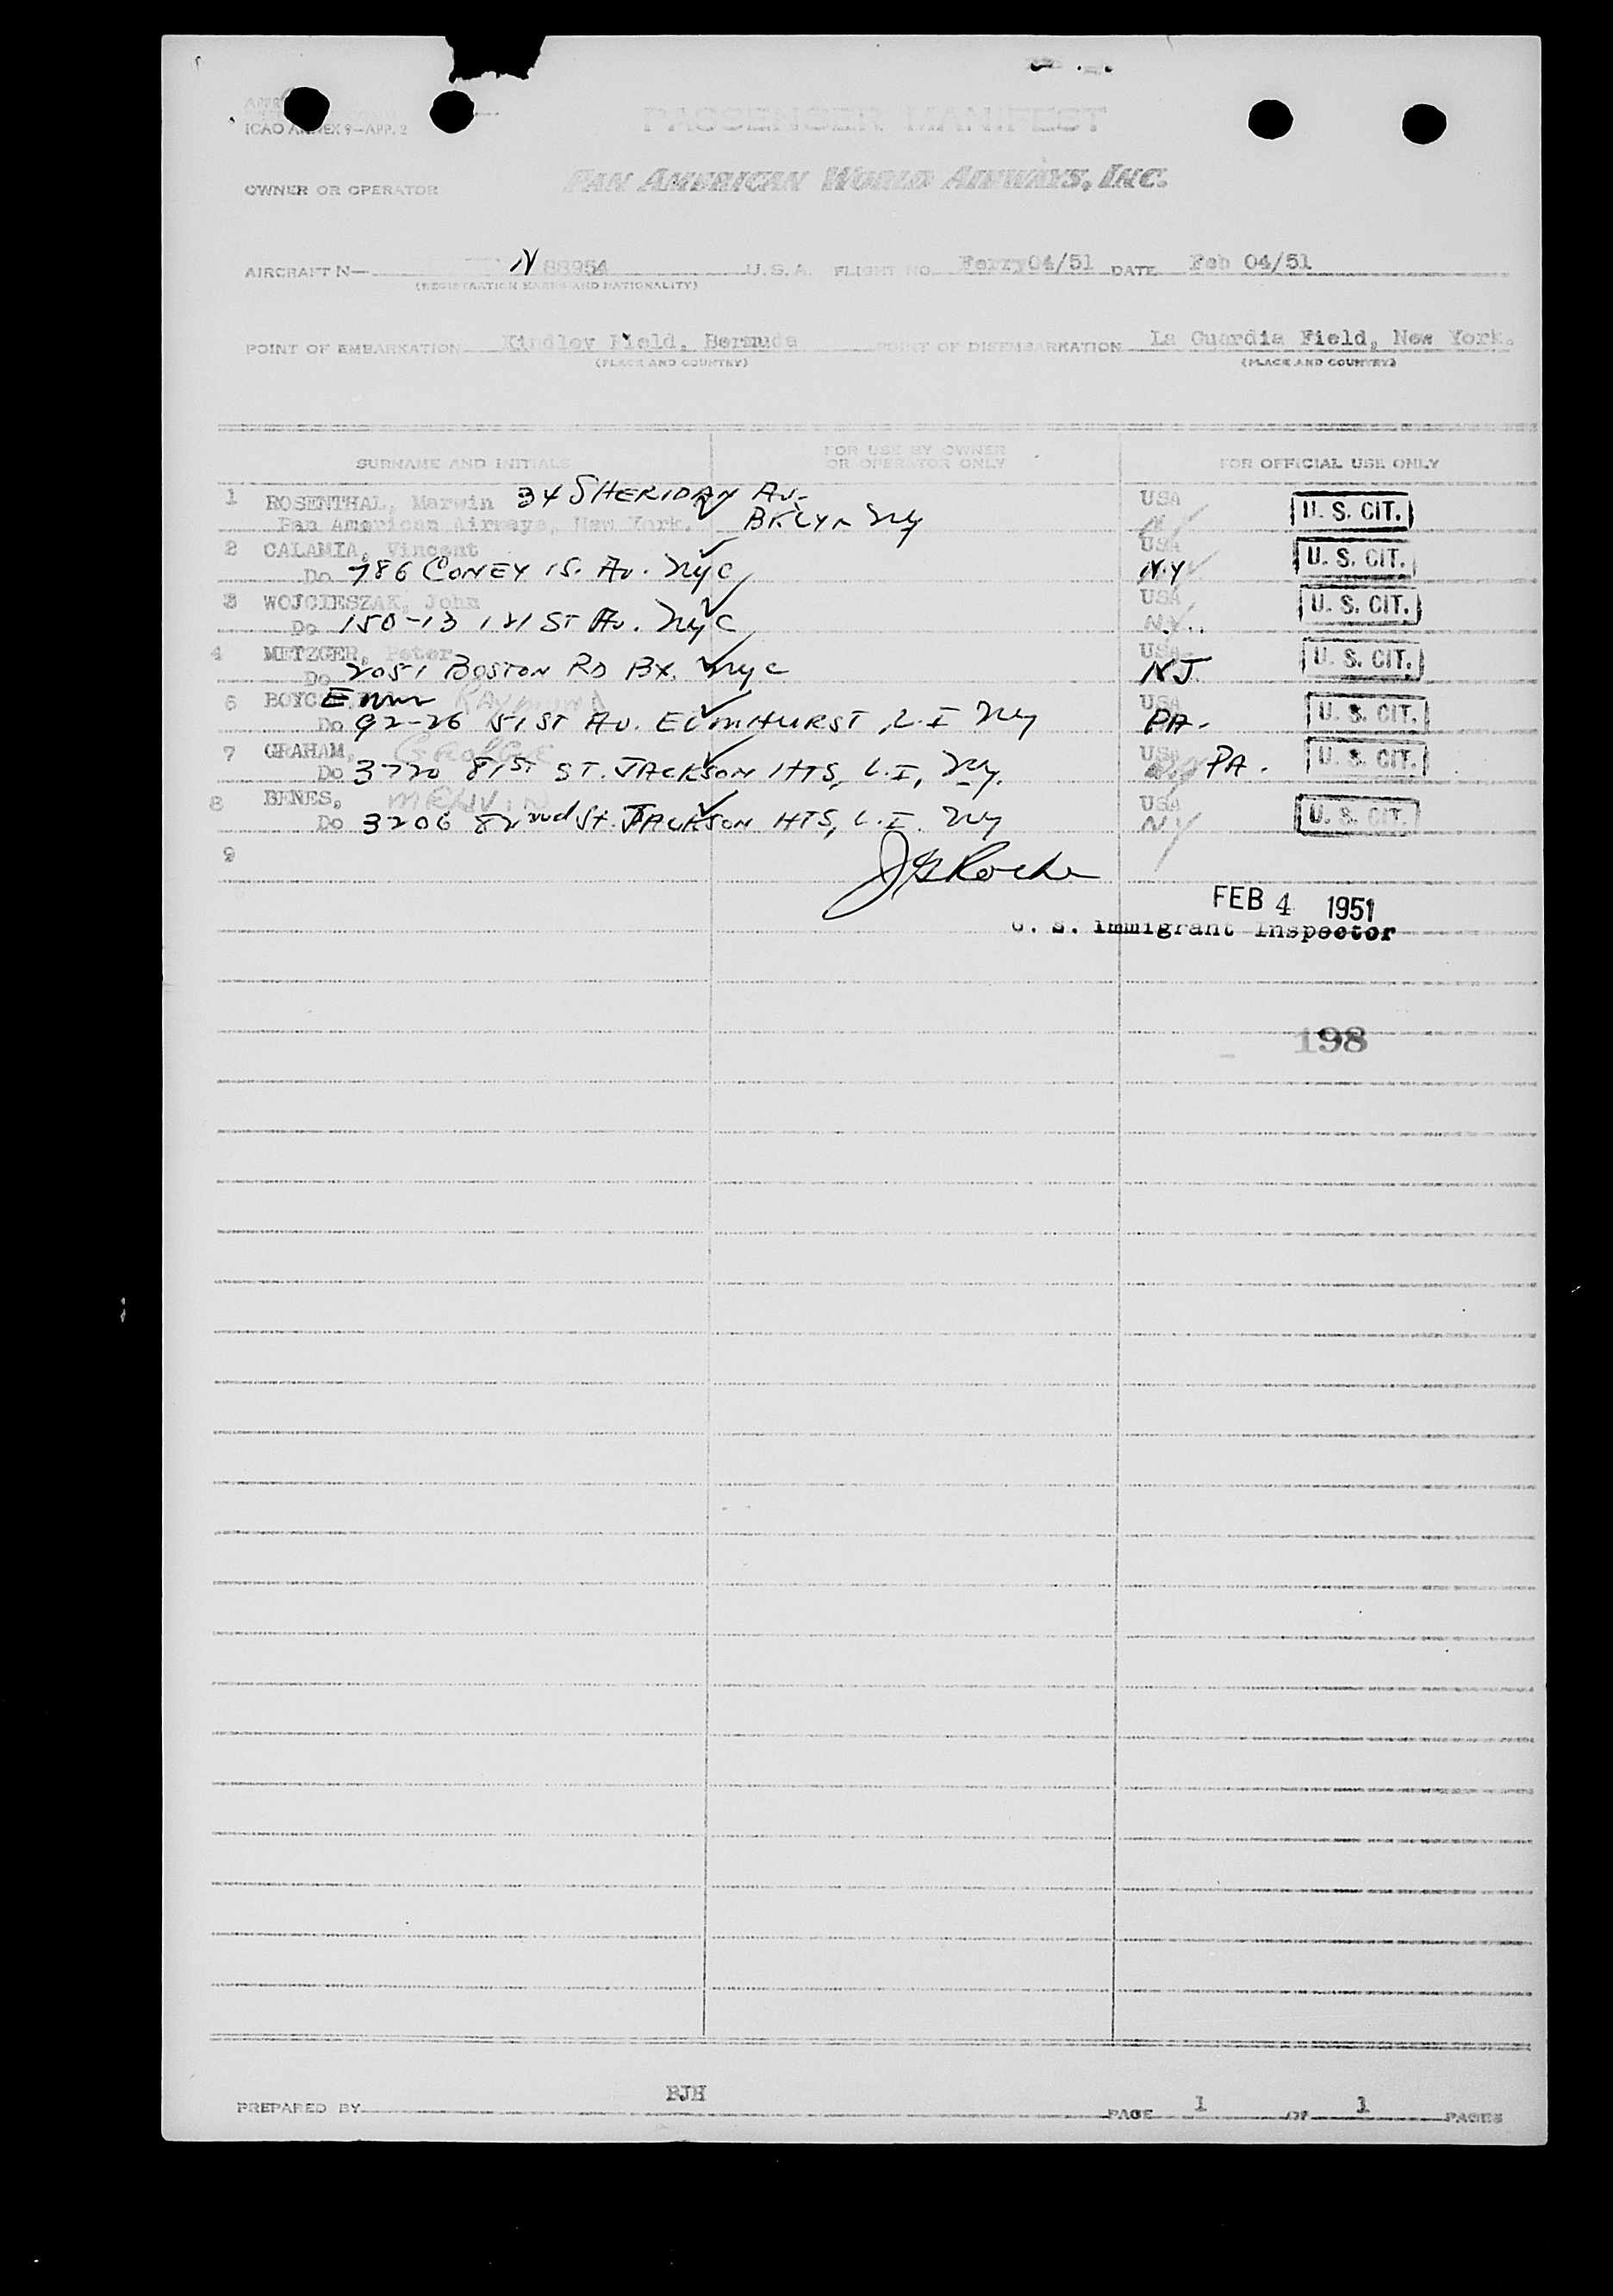 ICAO ANNEX 9—APP. 2
PASSENGER MANIFEST
OWNER OR OPERATOR PAN AMERICAN WORLD AIRWAYS, INC.
AIRCRAFT N— N 88954 U.S.A. FLIGHT NO. Ferry04/51 DATE Feb 04/51
(REGISTRATION MARKS AND NATIONALITY)
POINT OF EMBARKATION Kindley Field, Bermuda POINT OF DISEMBARKATION La Guardia Field, New York.
(PLACE AND COUNTRY) (PLACE AND COUNTRY)
SURNAME AND INITIALS FOR USE BY OWNER OR OPERATOR ONLY FOR OFFICIAL USE ONLY
1 ROSENTHAL, Marwin 34 SHERIDAN AV. USA U. S. CIT.
Pan American Airways, New York. BKLYN NY
2 CALAMIA, Vincent USA U. S. CIT.
Do 786 CONEY IS. AV. NYC N.Y
3 WOJCIESZAK, John USA U. S. CIT.
Do 150-13 121 ST AV. NYC N.Y.
4 METZGER, Peter USA U. S. CIT.
Do 2051 BOSTON RD BX. NYC NJ
6 RAYMOND USA U. S. CIT.
Do 92-26 51 ST AV. ELMHURST, L.I NY PA.
7 GRAHAM, GEORGE USA U. S. CIT.
Do 3720 81ST ST. JACKSON HTS, L.I, NY. PA.
8 BENES, MELVIN USA U. S. CIT.
Do 3206 82nd St. JACKSON HTS, L.I. NY NY
9
FEB 4 1951
U. S. Immigrant Inspector
198
PREPARED BY BJH PAGE 1 OF 1 PAGES